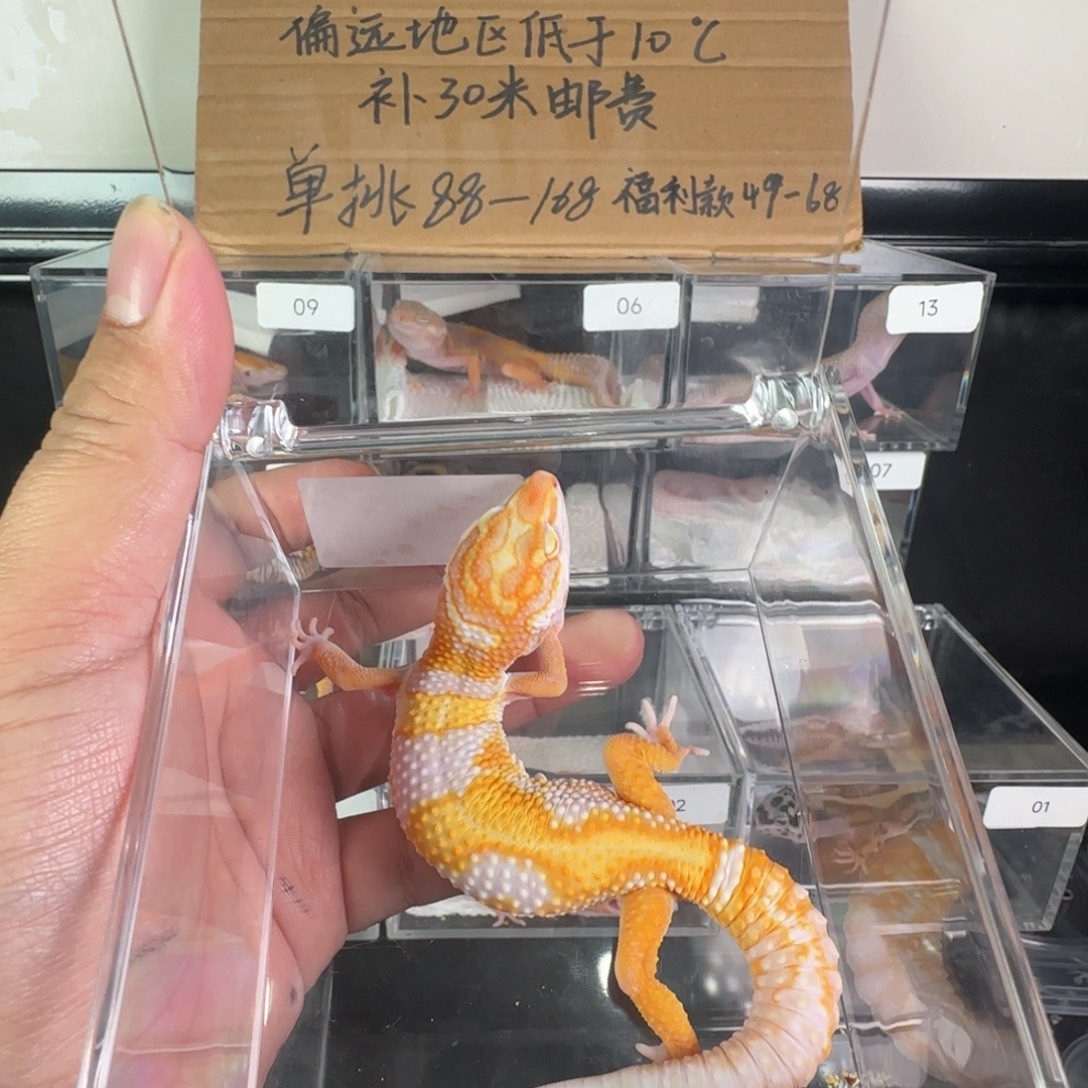 偏远地区低于10℃
补30米邮费
单挑88-168 福利款49-68
09
06
13
07
02
01